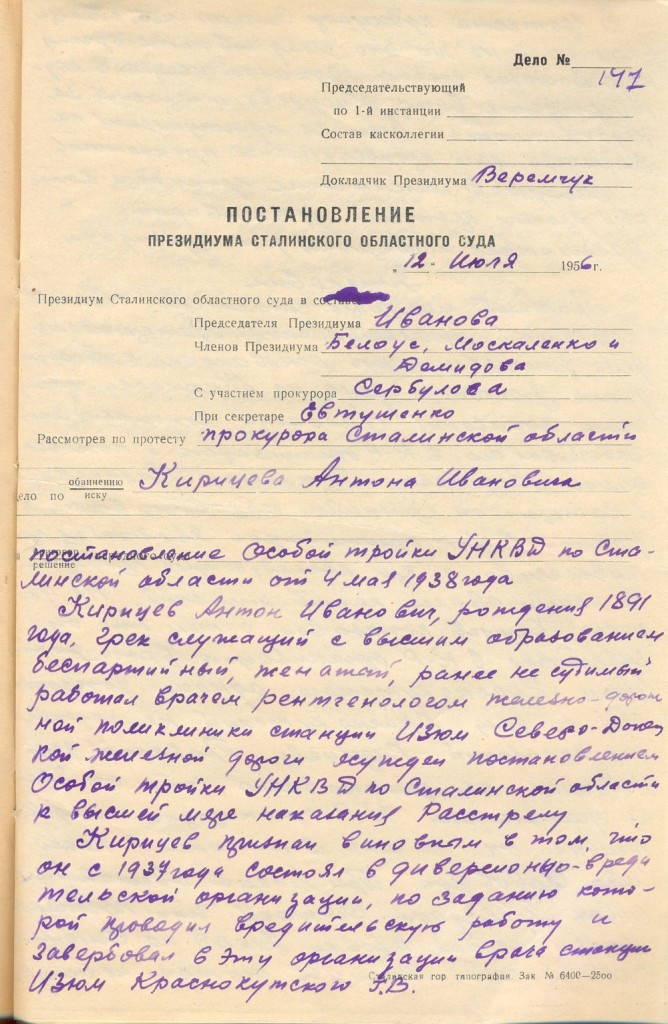 Дело №
147
Председательствующий
по 1-й инстанции
Состав касколлегии
Докладчик Президиума Веремчук
ПОСТАНОВЛЕНИЕ
ПРЕЗИДИУМА СТАЛИНСКОГО ОБЛАСТНОГО СУДА
„12" Июля 1956 г.
Президиум Сталинского областного суда в составе
Председателя Президиума Иванова
Членов Президиума Белоус, Москаленко и
Демидова
С участием прокурора Сербулова
При секретаре Евтушенко
Рассмотрев по протесту прокурора Сталинской области
ело по обвинению Кирицева Антона Ивановича
иску
приговор
решение
постановление Особой тройки УНКВД по Ста-
линской области от 4 мая 1938 года
Кирицев Антон Иванович, рождения 1891
года, грек служащий с высшим образованием
беспартийный, женатый, ранее не судимый
работал врачем рентгенологом железно-дорож
ной поликлиники станции Изюм Северо-Донец
кой железной дороги осужден постановлением
Особой тройки УНКВД по Сталинской области
к высшей мере наказания Расстрелу
Кирицев признан виновным в том, что
он с 1937 года состоял в диверсионно-вреди
тельской организации, по заданию кото-
рой проводил вредительскую работу и
завербовал в эту организации врача станции
Изюм Краснокутского Г.В.
Сталинская гор. типография. Зак. № 6400—2500